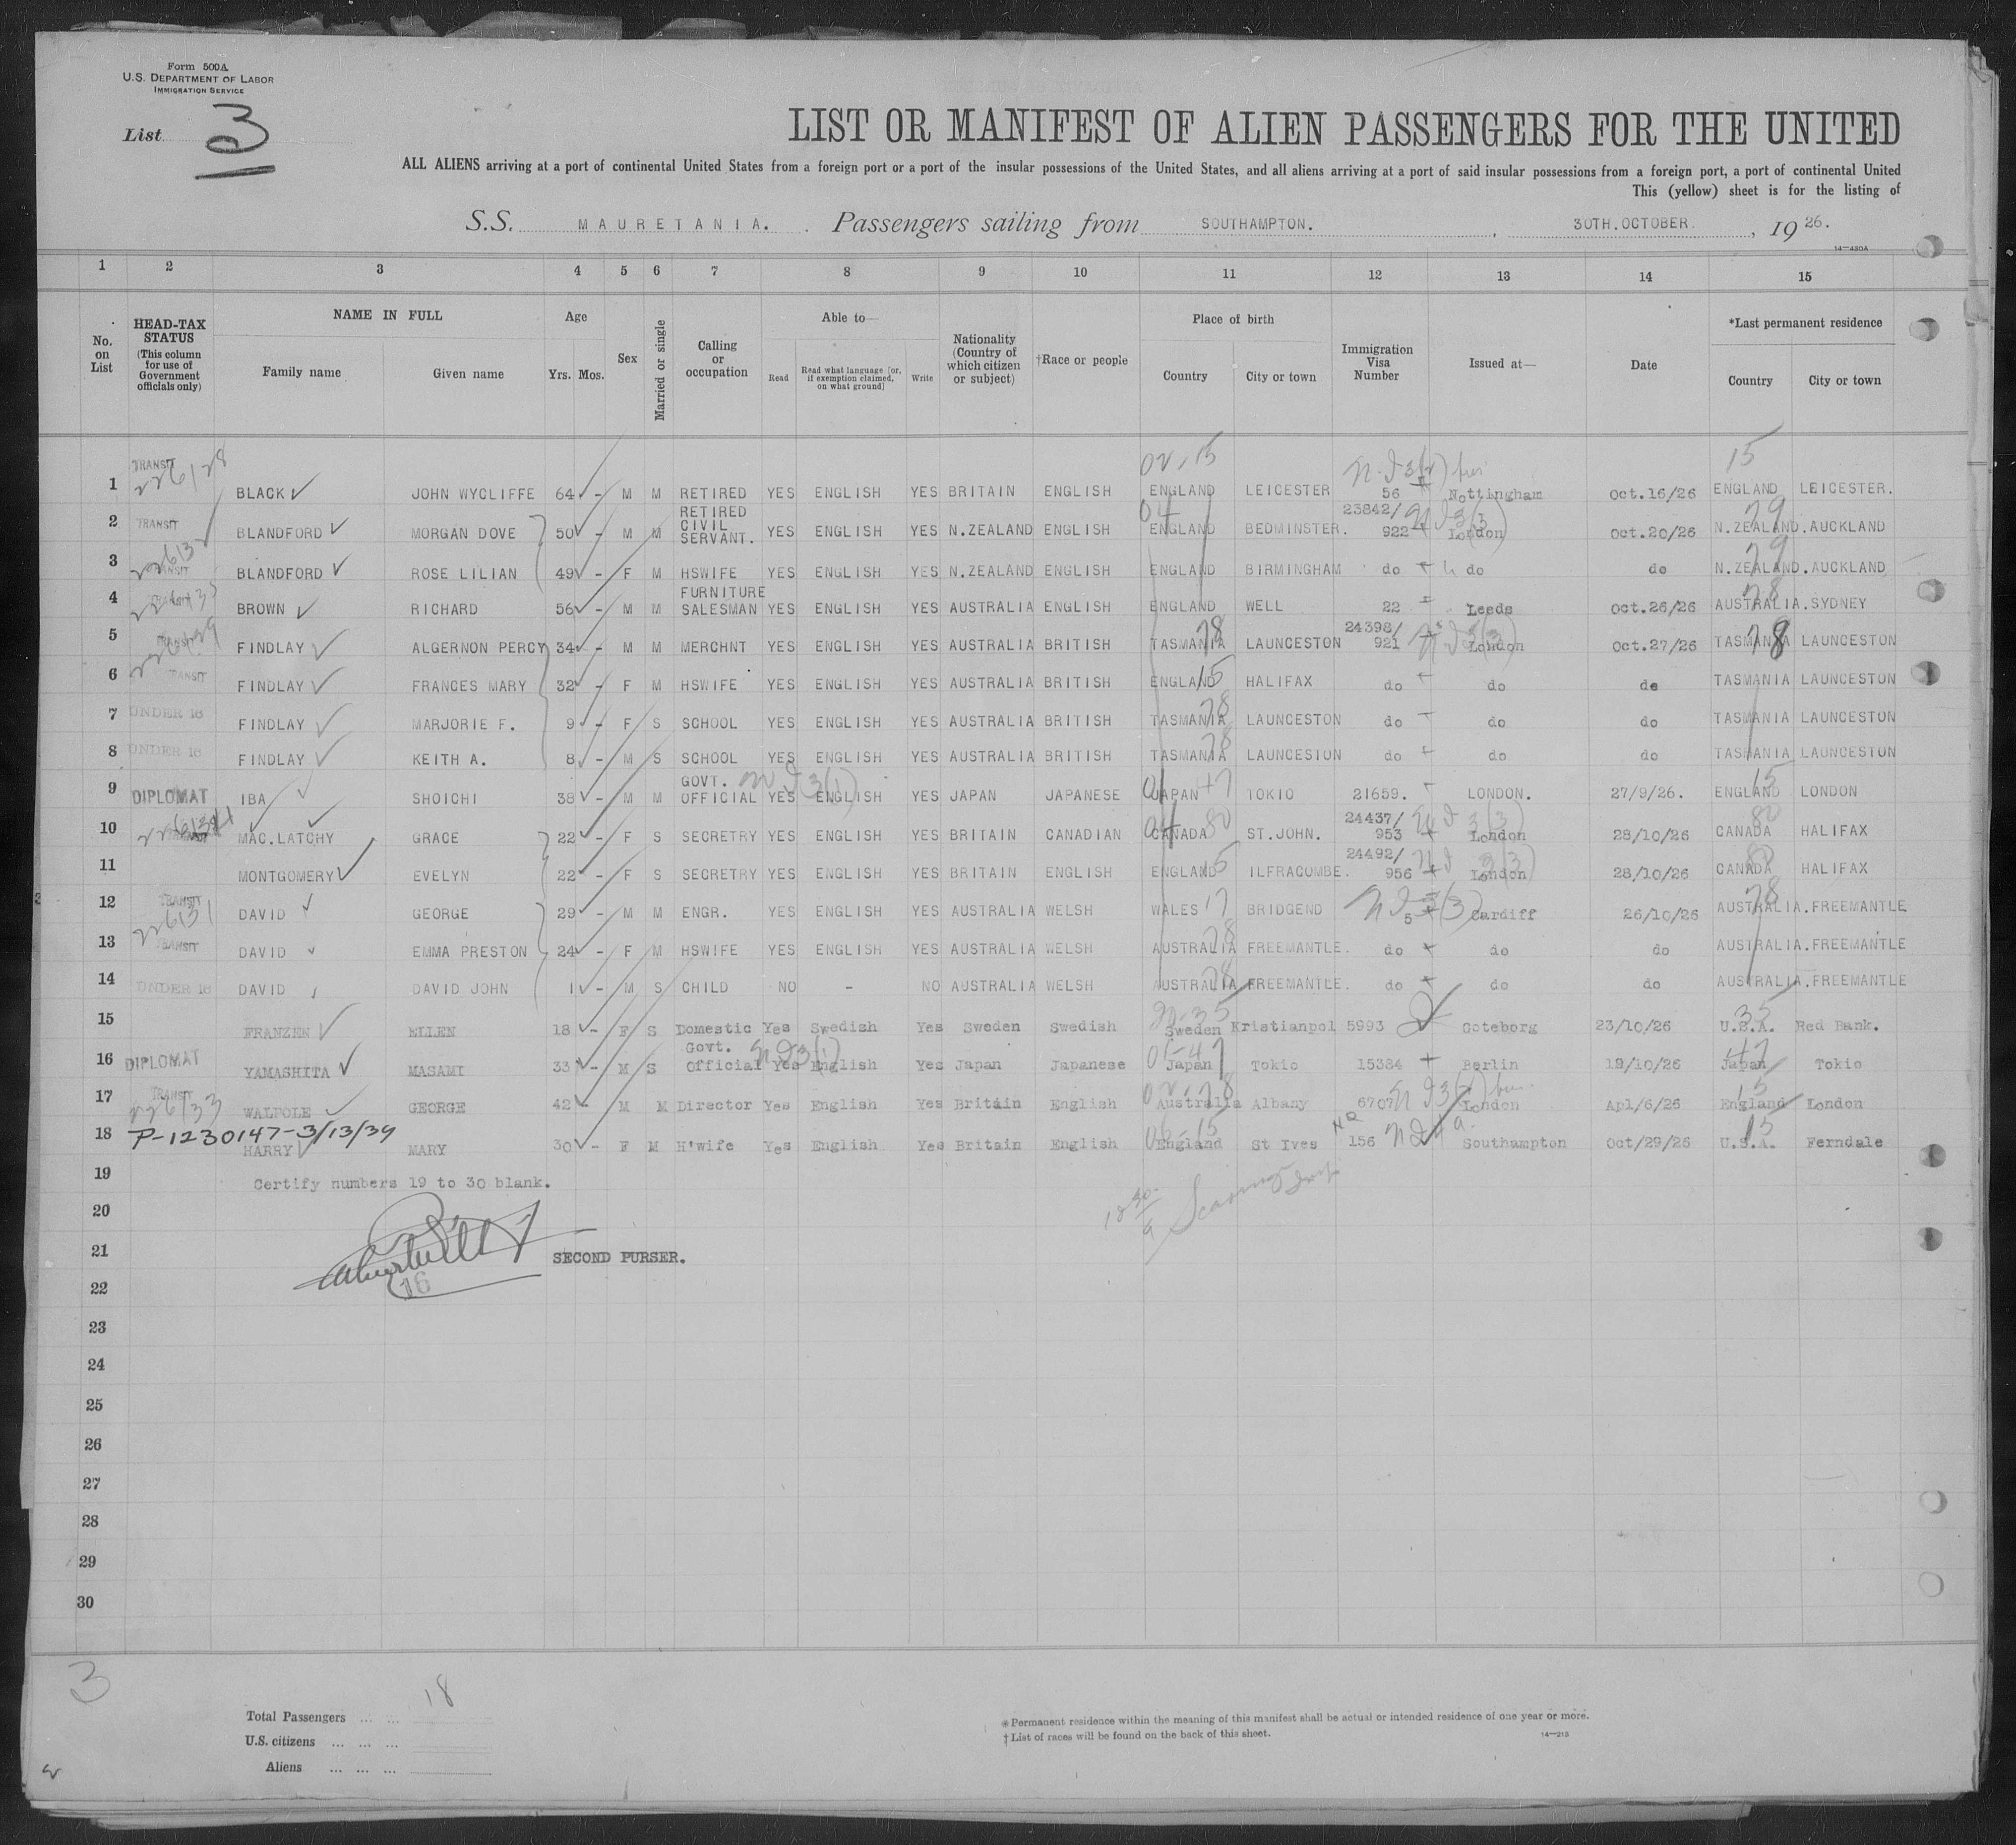 Form 500A
U.S. DEPARTMENT OF LABOR
IMMIGRATION SERVICE
List 3
LIST OR MANIFEST OF ALIEN PASSENGERS FOR THE UNITED
ALL ALIENS arriving at a port of continental United States from a foreign port or a port of the insular possessions of the United States, and all aliens arriving at a port of said insular possessions from a foreign port, a port of continental United
This (yellow) sheet is for the listing of
S.S. MAURETANIA. Passengers sailing from SOUTHAMPTON. , 30TH.OCTOBER. , 19 26.
14—480A
1 2 3 4 5 6 7 8 9 10 11 12 13 14 15
No. on List HEAD-TAX STATUS (This column for use of Government officials only) NAME IN FULL Family name Given name Age Yrs. Mos. Sex Married or single Calling or occupation Able to— Read Read what language [or, if exemption claimed, on what ground] Write Nationality (Country of which citizen or subject) †Race or people Place of birth Country City or town Immigration Visa Number Issued at— Date *Last permanent residence Country City or town
1 TRANSIT 226128 BLACK JOHN WYCLIFFE 64 - M M RETIRED YES ENGLISH YES BRITAIN ENGLISH 02-15 ENGLAND LEICESTER 56 Nottingham Oct.16/26 15 ENGLAND LEICESTER.
2 TRANSIT BLANDFORD MORGAN DOVE 50 - M M RETIRED CIVIL SERVANT. YES ENGLISH YES N.ZEALAND ENGLISH 04 ENGLAND BEDMINSTER. 23842/ 922 London Oct.20/26 79 N.ZEALAND. AUCKLAND
3 TRANSIT BLANDFORD ROSE LILIAN 49 - F M HSWIFE YES ENGLISH YES N.ZEALAND ENGLISH ENGLAND BIRMINGHAM do do do 79 N.ZEALAND. AUCKLAND
4 TRANSIT BROWN RICHARD 56 - M M FURNITURE SALESMAN YES ENGLISH YES AUSTRALIA ENGLISH ENGLAND WELL 22 Leeds Oct.26/26 78 AUSTRALIA. SYDNEY
5 TRANSIT FINDLAY ALGERNON PERCY 34 - M M MERCHNT YES ENGLISH YES AUSTRALIA BRITISH TASMANIA 78 LAUNCESTON 24398/ 921 London Oct.27/26 TASMANIA 78 LAUNCESTON
6 TRANSIT FINDLAY FRANCES MARY 32 - F M HSWIFE YES ENGLISH YES AUSTRALIA BRITISH ENGLAND 15 HALIFAX do do do TASMANIA LAUNCESTON
7 UNDER 16 FINDLAY MARJORIE F. 9 - F S SCHOOL YES ENGLISH YES AUSTRALIA BRITISH TASMANIA 78 LAUNCESTON do do do TASMANIA LAUNCESTON
8 UNDER 16 FINDLAY KEITH A. 8 - M S SCHOOL YES ENGLISH YES AUSTRALIA BRITISH TASMANIA 78 LAUNCESTON do do do TASMANIA LAUNCESTON
9 DIPLOMAT IBA SHOICHI 38 - M M GOVT. OFFICIAL YES ENGLISH YES JAPAN JAPANESE 01 JAPAN 47 TOKIO 21659. LONDON. 27/9/26. 15 ENGLAND LONDON
10 MAC.LATCHY GRACE 22 - F S SECRETRY YES ENGLISH YES BRITAIN CANADIAN 04 CANADA 80 ST.JOHN. 24437/ 953 London 28/10/26 80 CANADA HALIFAX
11 MONTGOMERY EVELYN 22 - F S SECRETRY YES ENGLISH YES BRITAIN ENGLISH ENGLAND 15 ILFRACOMBE. 24492/ 956 London 28/10/26 CANADA HALIFAX
12 TRANSIT 226131 DAVID GEORGE 29 - M M ENGR. YES ENGLISH YES AUSTRALIA WELSH WALES 17 BRIDGEND 5 Cardiff 26/10/26 78 AUSTRALIA. FREEMANTLE
13 TRANSIT DAVID EMMA PRESTON 24 - F M HSWIFE YES ENGLISH YES AUSTRALIA WELSH AUSTRALIA 78 FREEMANTLE. do do do AUSTRALIA. FREEMANTLE
14 UNDER 16 DAVID DAVID JOHN 1 - M S CHILD NO - NO AUSTRALIA WELSH AUSTRALIA 78 FREEMANTLE. do do do AUSTRALIA. FREEMANTLE
15 FRANZEN ELLEN 18 - F S Domestic Yes Swedish Yes Sweden Swedish 20-35 Sweden Kristianpol 5993 Goteborg 23/10/26 35 U.S.A. Red Bank.
16 DIPLOMAT YAMASHITA MASAMI 33 - M S Govt. Official Yes English Yes Japan Japanese 01-47 Japan Tokio 15384 Berlin 19/10/26 47 Japan Tokio
17 TRANSIT 226133 WALPOLE GEORGE 42 - M M Director Yes English Yes Britain English 02-78 Australia Albany 6707 London Apl/6/26 15 England London
18 P-1230147-3/13/39 HARRY MARY 30 - F M H'wife Yes English Yes Britain English 06-15 England St Ives 156 Southampton Oct/29/26 15 U.S.A. Ferndale
19 Certify numbers 19 to 30 blank.
20
21 SECOND PURSER.
16
22
23
24
25
26
27
28
29
30
3
Total Passengers ... ... 18
U.S. citizens ... ... ...
Aliens ... ... ...
* Permanent residence within the meaning of this manifest shall be actual or intended residence of one year or more.
† List of races will be found on the back of this sheet.
14—213